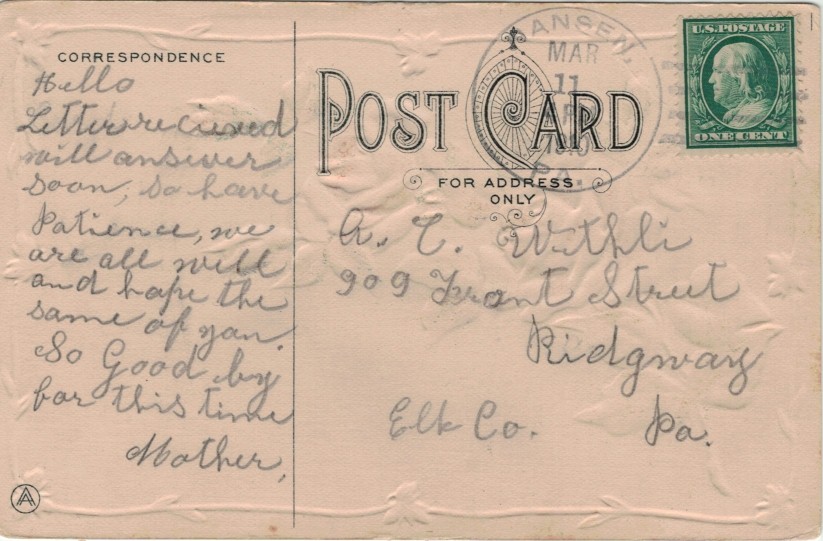 CORRESPONDENCE
Hello
Letter recieved
will answer
soon, so have
Patience, we
are all well
and hope the
same of you.
So Good by
for this time
Mother,
POST CARD
FOR ADDRESS
ONLY
ANSEN,
MAR
11
PA.
U.S. POSTAGE
ONE CENT
A. C. Withli
909 Front Street
Ridgway
Elk Co. Pa.